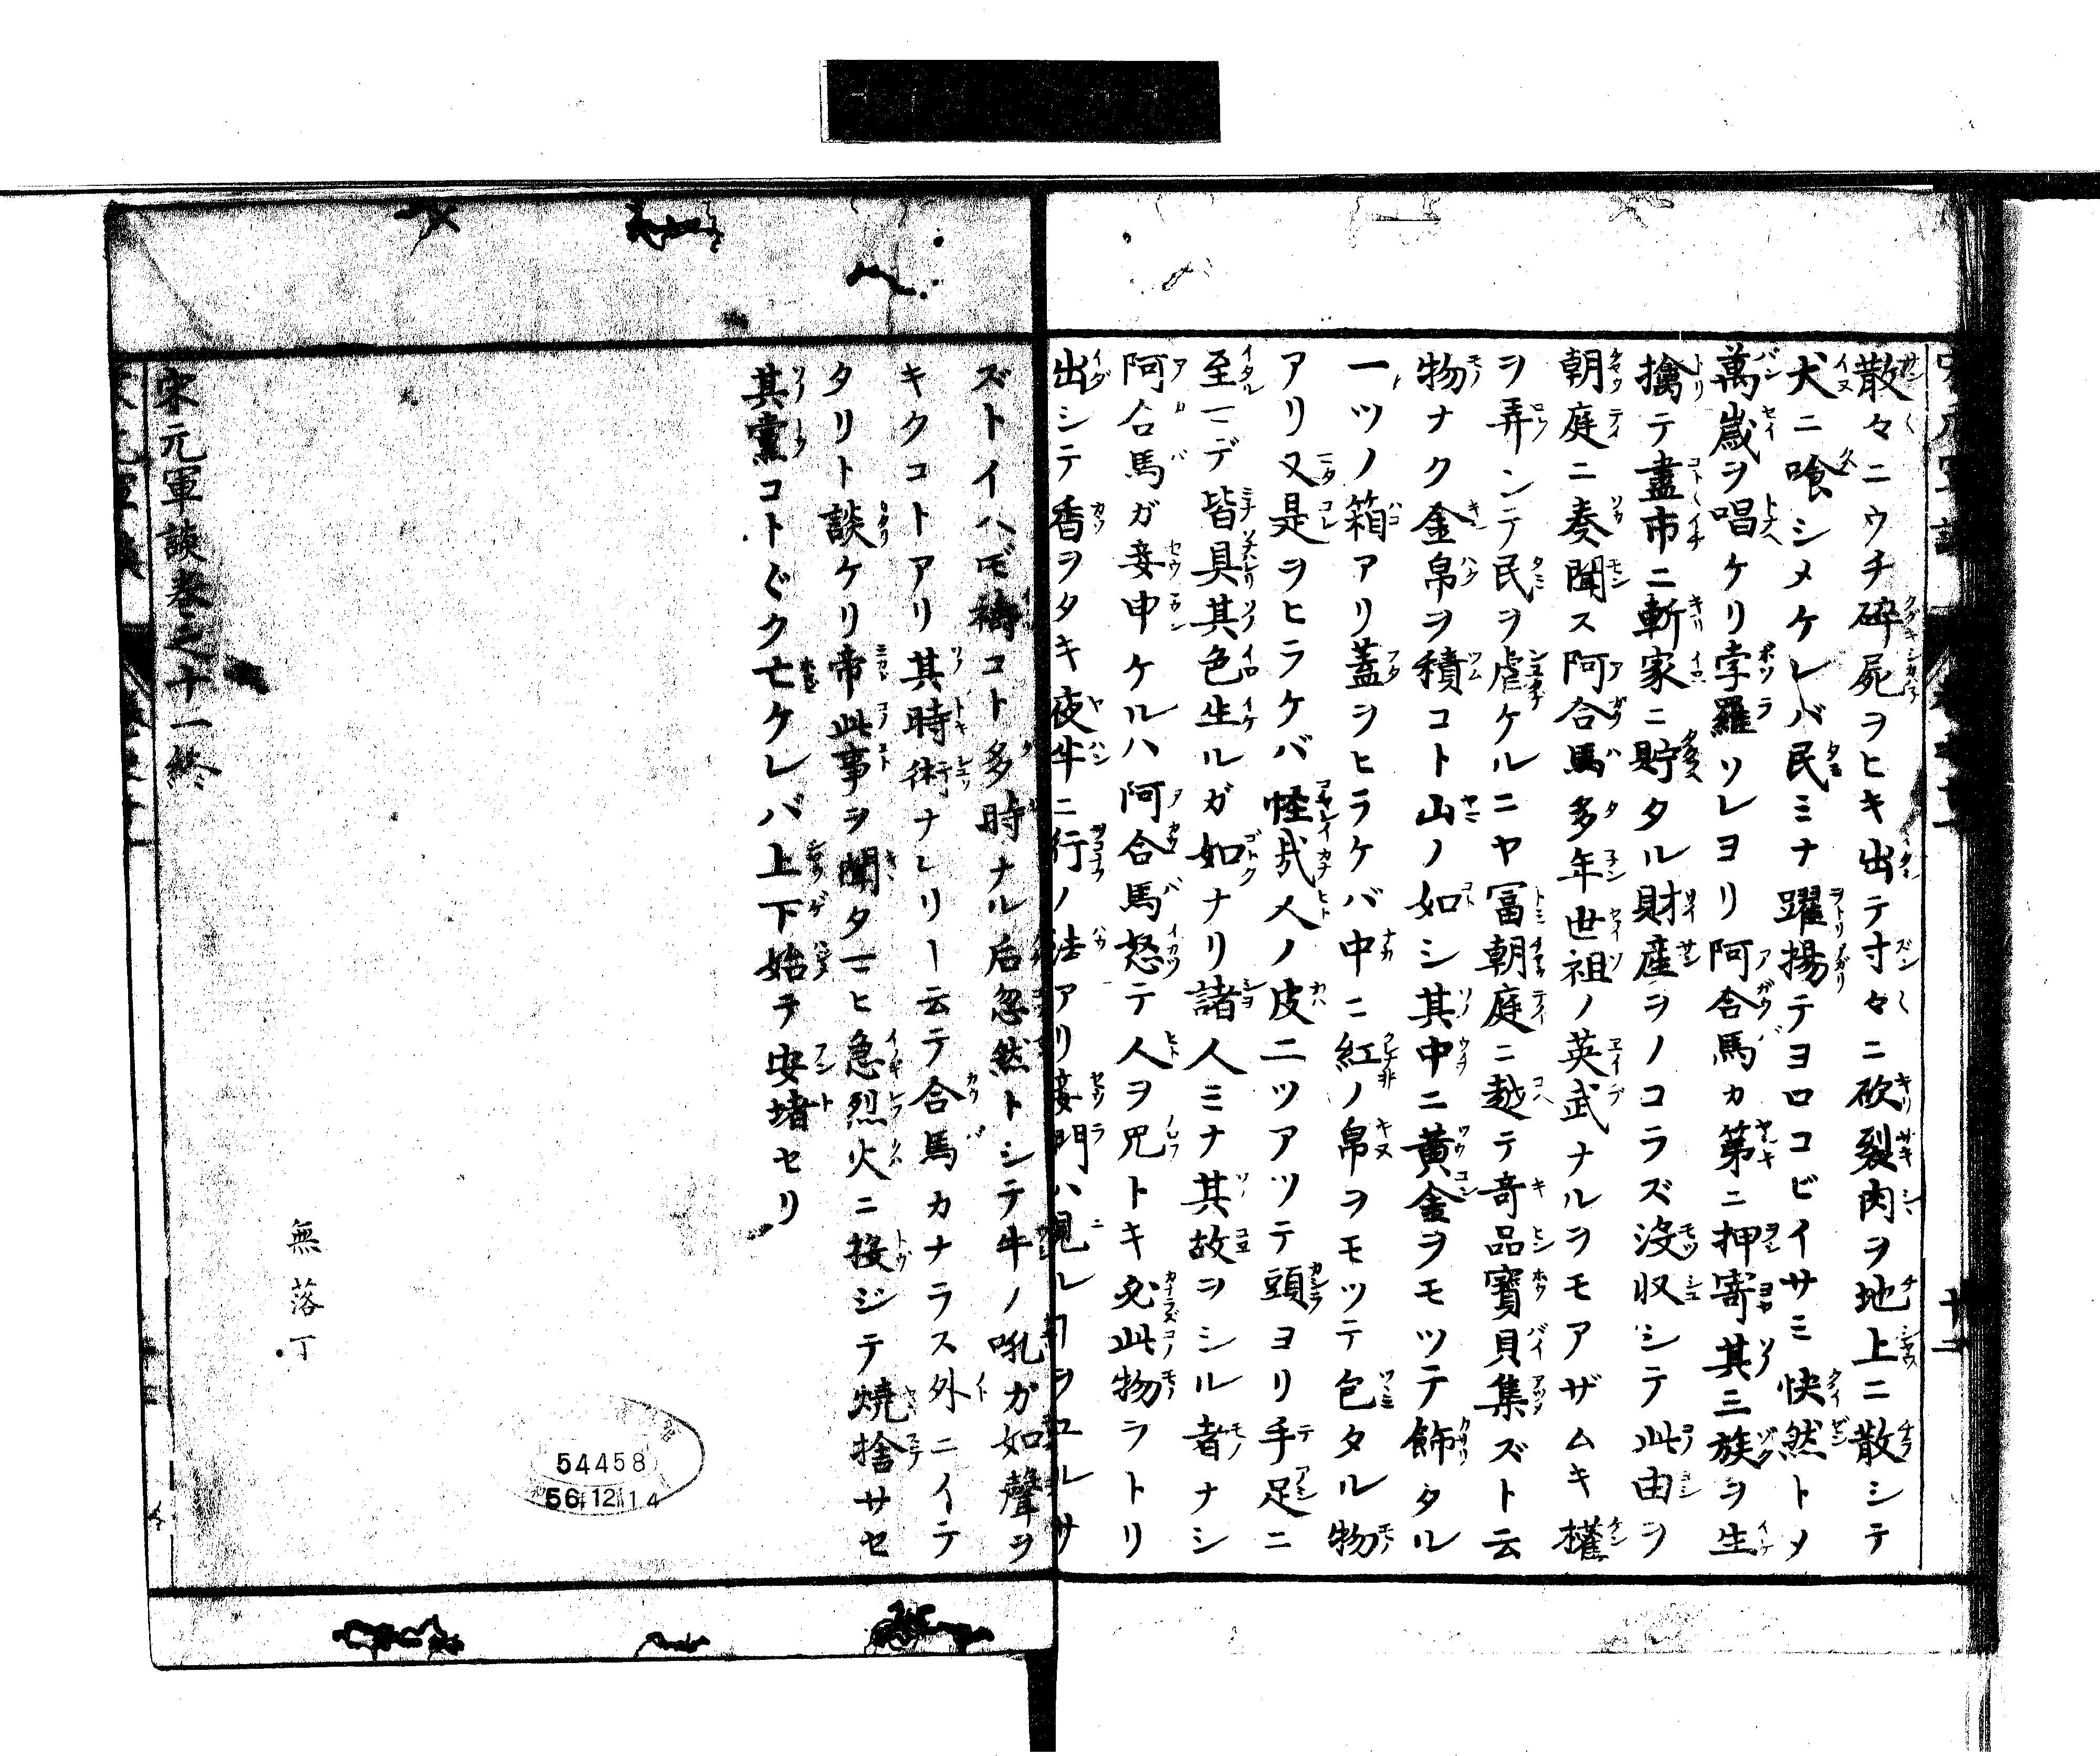 散々ニウチ碎屍ヲヒキ出テ寸々ニ砍裂肉ヲ地上ニ散シテ
犬ニ喰シメケレバ民ミナ躍揚テヨロコビイサミ快然トメ
萬歳ヲ唱ケリ孛羅ソレヨリ阿合馬カ第ニ押寄其三族ヲ生
擒テ盡市ニ斬家ニ貯タル財産ヲノコラズ没収シテ此由ヲ
朝庭ニ奏聞ス阿合馬多年世祖ノ英武ナルヲモアザムキ權
ヲ弄ンテ民ヲ虐ケルニヤ冨朝庭ニ越テ竒品寶貝集ズト云
物ナク金帛ヲ積コト山ノ如シ其中ニ黄金ヲモツテ飾タル
一ツノ箱アリ蓋ヲヒラケバ中ニ紅ノ帛ヲモツテ包タル物
アリ又是ヲヒラケバ怪哉人ノ皮二ツアツテ頭ヨリ手足ニ
至マデ皆具其色生ルガ如ナリ諸人ミナ其故ヲシル者ナシ
阿合馬ガ妾申ケルハ阿合馬怒テ人ヲ咒トキ必此物ヲトリ
出シテ香ヲタキ夜半ニ行ノ法アリ妾門ハ見ルヿヲユルサ
ズトイヘ𪜈禱コト多時ナル后忽然トシテ牛ノ吼ガ如聲ヲ
キクコトアリ其時術ナレリト云テ合馬カナラス外ニイテ
タリト談ケリ帝此事ヲ聞タマヒ急烈火ニ投ジテ燒捨サセ
其黨コト〴〵ク亡ケレバ上下始テ安堵セリ
無落丁
宋元軍談巻之十一終
54458
56.12.14